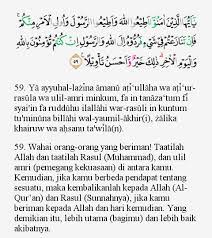 يَٰٓأَيُّهَا الَّذِينَ ءَامَنُوٓا أَطِيعُوا اللَّهَ وَأَطِيعُوا الرَّسُولَ وَأُولِى الْأَمْرِ مِنكُمْ
فَإِن تَنَٰزَعْتُمْ فِى شَىْءٍ فَرُدُّوهُ إِلَى اللَّهِ وَالرَّسُولِ إِن كُنتُمْ تُؤْمِنُونَ بِاللَّهِ
وَالْيَوْمِ الْءَاخِرِ ذَٰلِكَ خَيْرٌ وَأَحْسَنُ تَأْوِيلًا ٥٩
59. Yā ayyuhal-lażīna āmanū aṭī'ullāha wa aṭī'ur-
rasụla wa ulil-amri mingkum, fa in tanāza'tum fī
syai`in fa ruddụhu ilallāhi war-rasụli in kuntum
tu`minụna billāhi wal-yaumil-ākhir(i), żālika
khairuw wa aḥsanu ta`wīlā(n).
59. Wahai orang-orang yang beriman! Taatilah
Allah dan taatilah Rasul (Muhammad), dan ulil
amri (pemegang kekuasaan) di antara kamu.
Kemudian, jika kamu berbeda pendapat tentang
sesuatu, maka kembalikanlah kepada Allah (Al-
Qur'an) dan Rasul (Sunnahnya), jika kamu beriman
kepada Allah dan hari kemudian. Yang
demikian itu, lebih utama (bagimu) dan lebih baik
akibatnya.